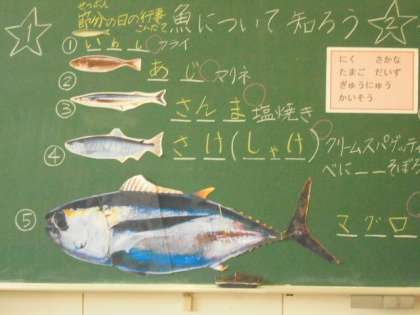 1
せつぶん
節分の日の行事
こんだて
魚について知ろう
2
① いわし フライ
② あじ マリネ
③ さんま 塩焼き
④ さけ(しゃけ) クリームスパゲッティ
べに
そぼろ
⑤ マグロ
にく さかな
たまご だいず
ぎゅうにゅう
かいそう